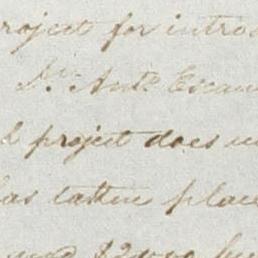 project for intro
Dr. Anto Escan
project does
has taken place
and $2000